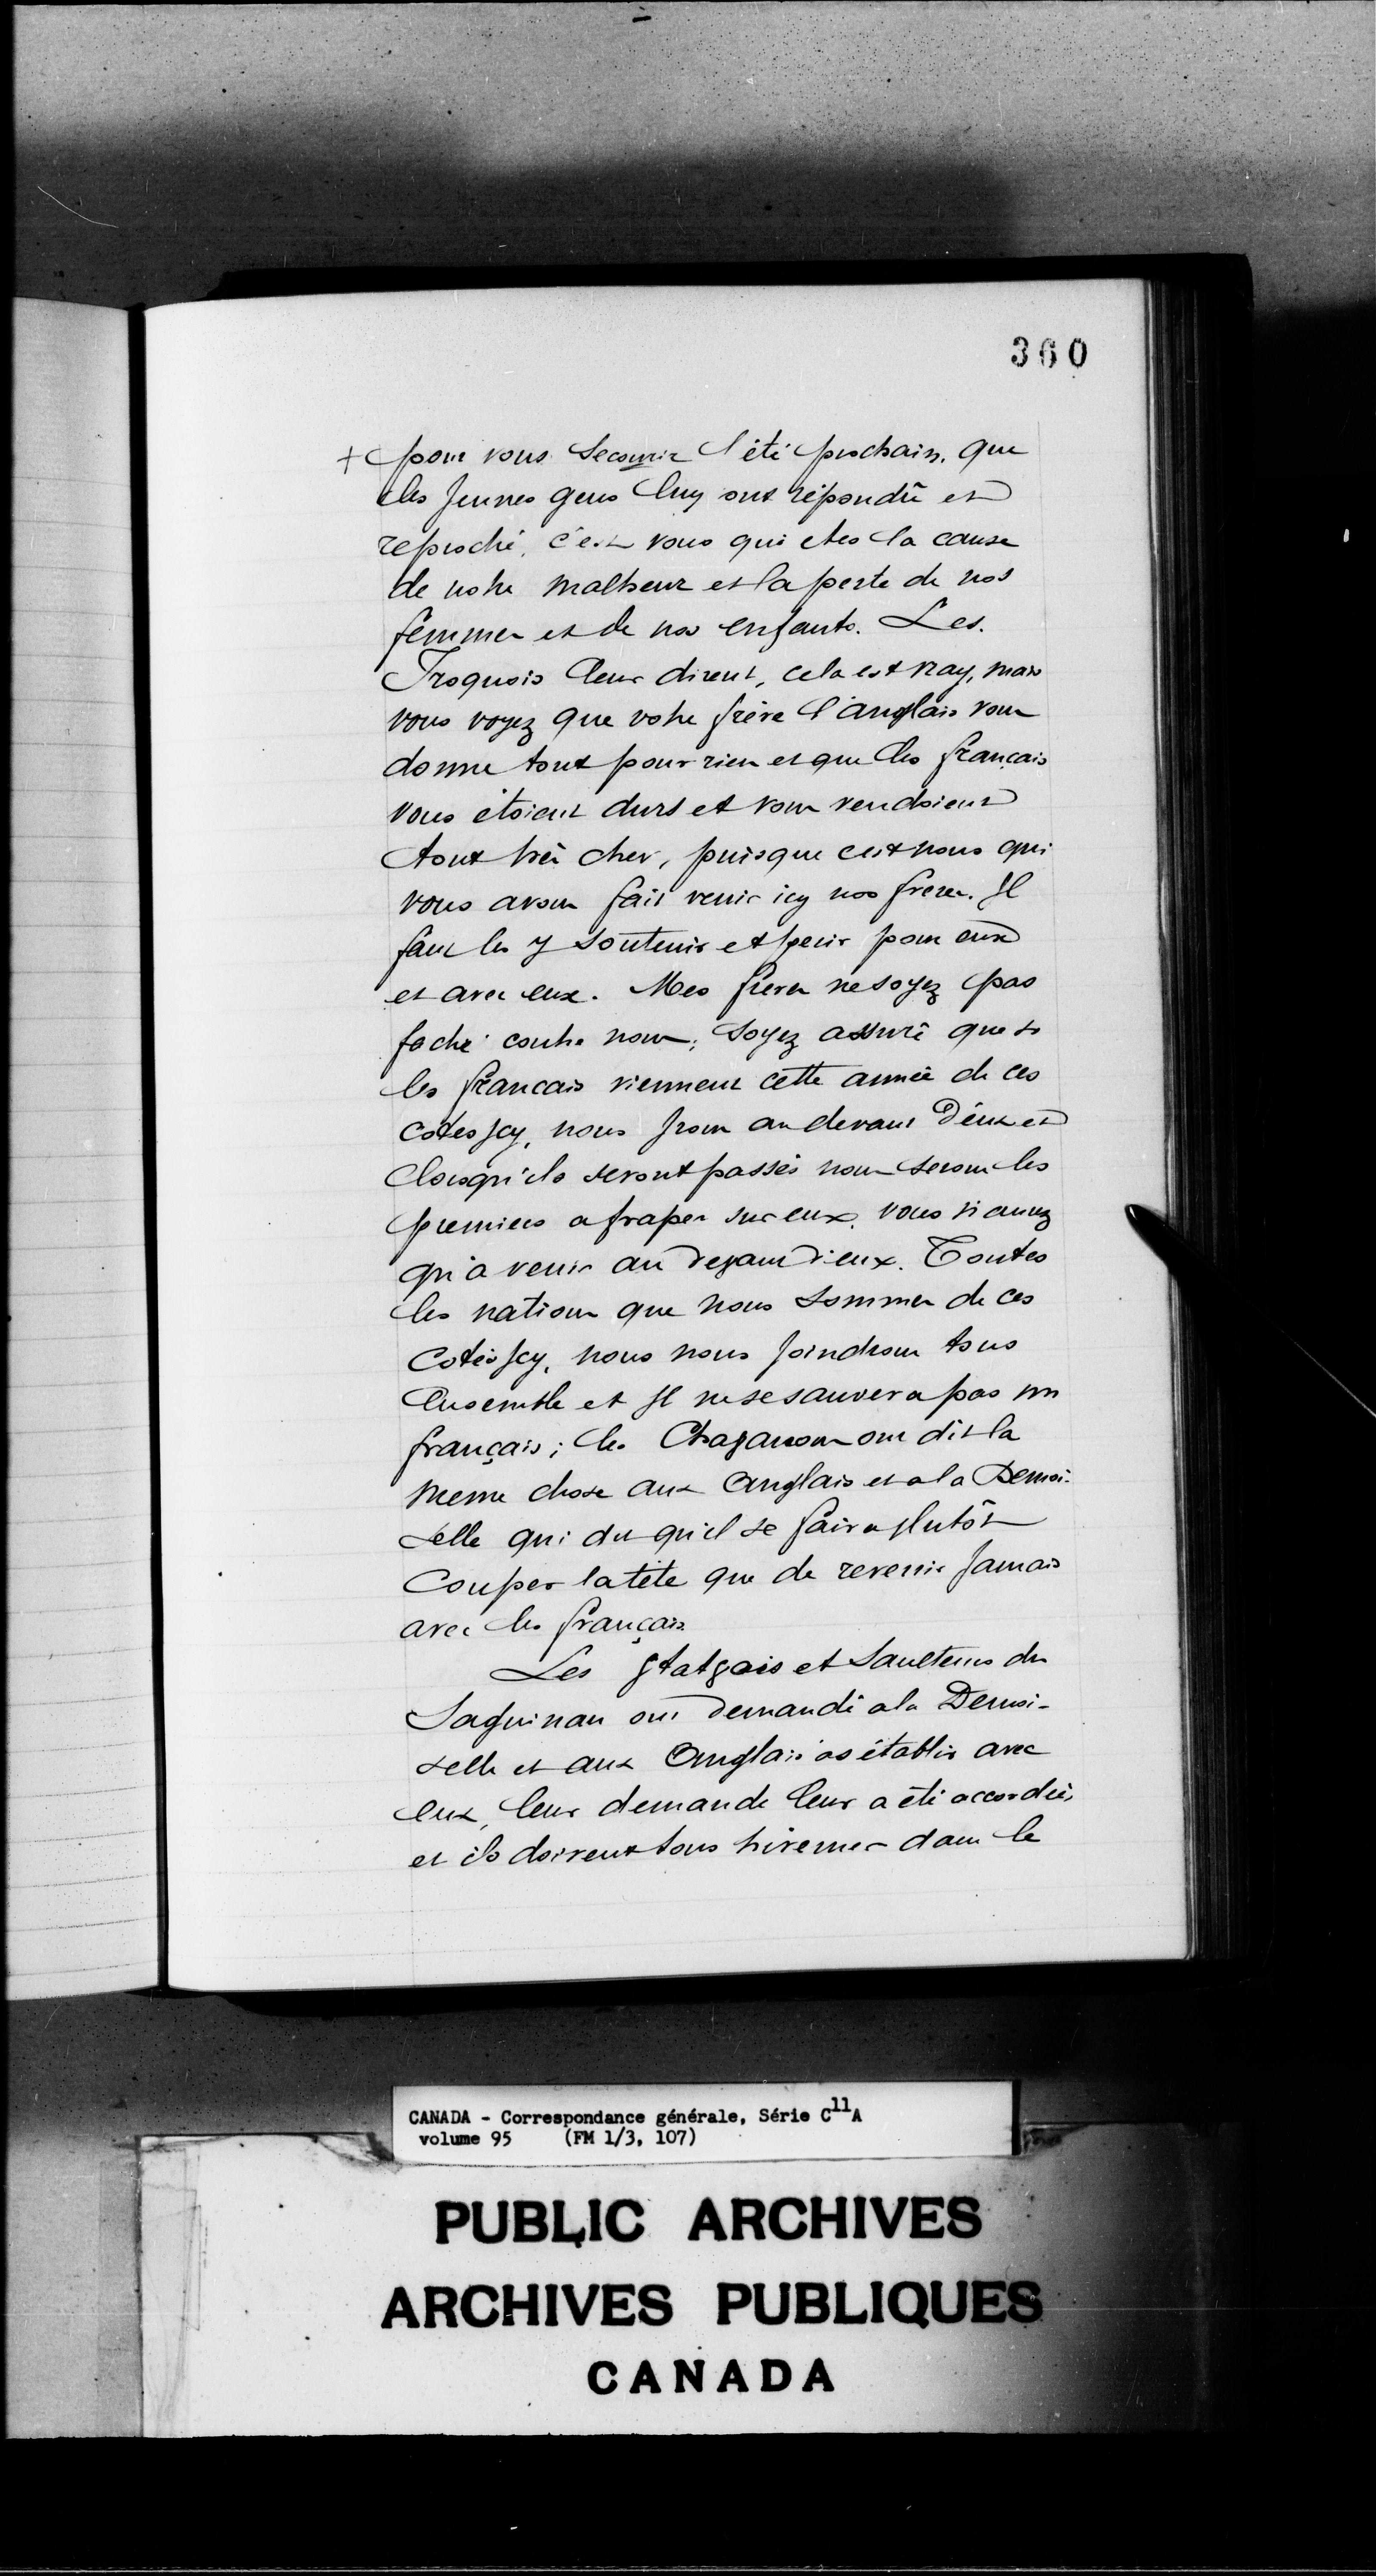 360
+ pour vous secourir l'été prochain, que
les Jeunes gens luy ont répondû et
reproché, c'est vous qui etes la cause
de notre malheur et la perte de nos
femmes et de nos enfants. Les.
Iroquois leur dirent, cela est vray, mais
vous voyez que votre frère l'anglais vous
donne tout pour rien et que les français
vous étoient durs et vous vendoient
tout très cher, puisque c'est nous qui
vous avons fait venir icy nos freres. Il
faut les y soutenir et perir pour eux
et avec eux. Mes freres ne soyez pas
faché contre nous; Soyez assuré que si
les francais viennent cette année de ces
cotes Jcy, nous Irons au devant d'eux et
lorsqu'ils seront passés nous serons les
premiers a fraper sur eux, vous n'aurez
qu'a venir au devant d'eux. Toutes
les nations que nous sommes de ces
cotés Jcy, nous nous Joindrons tous
Ensemble et Il ne se sauvera pas un
français; les Chaȣanons ont dit la
meme chose aux anglais et a la Demoi-
selle qui dit qu'il se faira plutôt
Couper la tête que de revenir Jamais
avec les français.
Les ȣtaȣais et Saulteurs du
Saguinau ont demandé a la Demoi-
selle et aux anglais as établir avec
eux, leur demande leur a été accordée,
et ils doivent tous hiverner dans le
CANADA - Correspondance générale, Série C11A
volume 95 (FM 1/3, 107)
PUBLIC ARCHIVES
ARCHIVES PUBLIQUES
CANADA